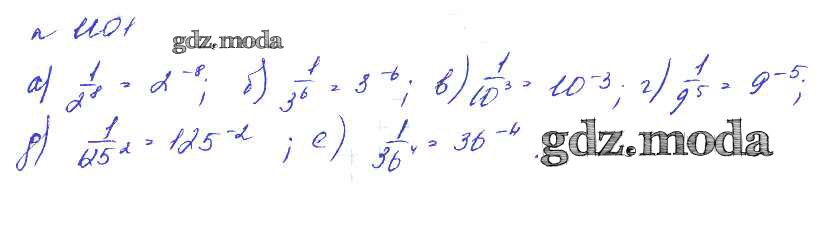 н 1101
gdz.moda
а) 1/2^8 = 2^-8; б) 1/3^6 = 3^-6; в) 1/10^3 = 10^-3; г) 1/9^5 = 9^-5;
д) 1/125^2 = 125^-2; е) 1/36^4 = 36^-4.
gdz.moda